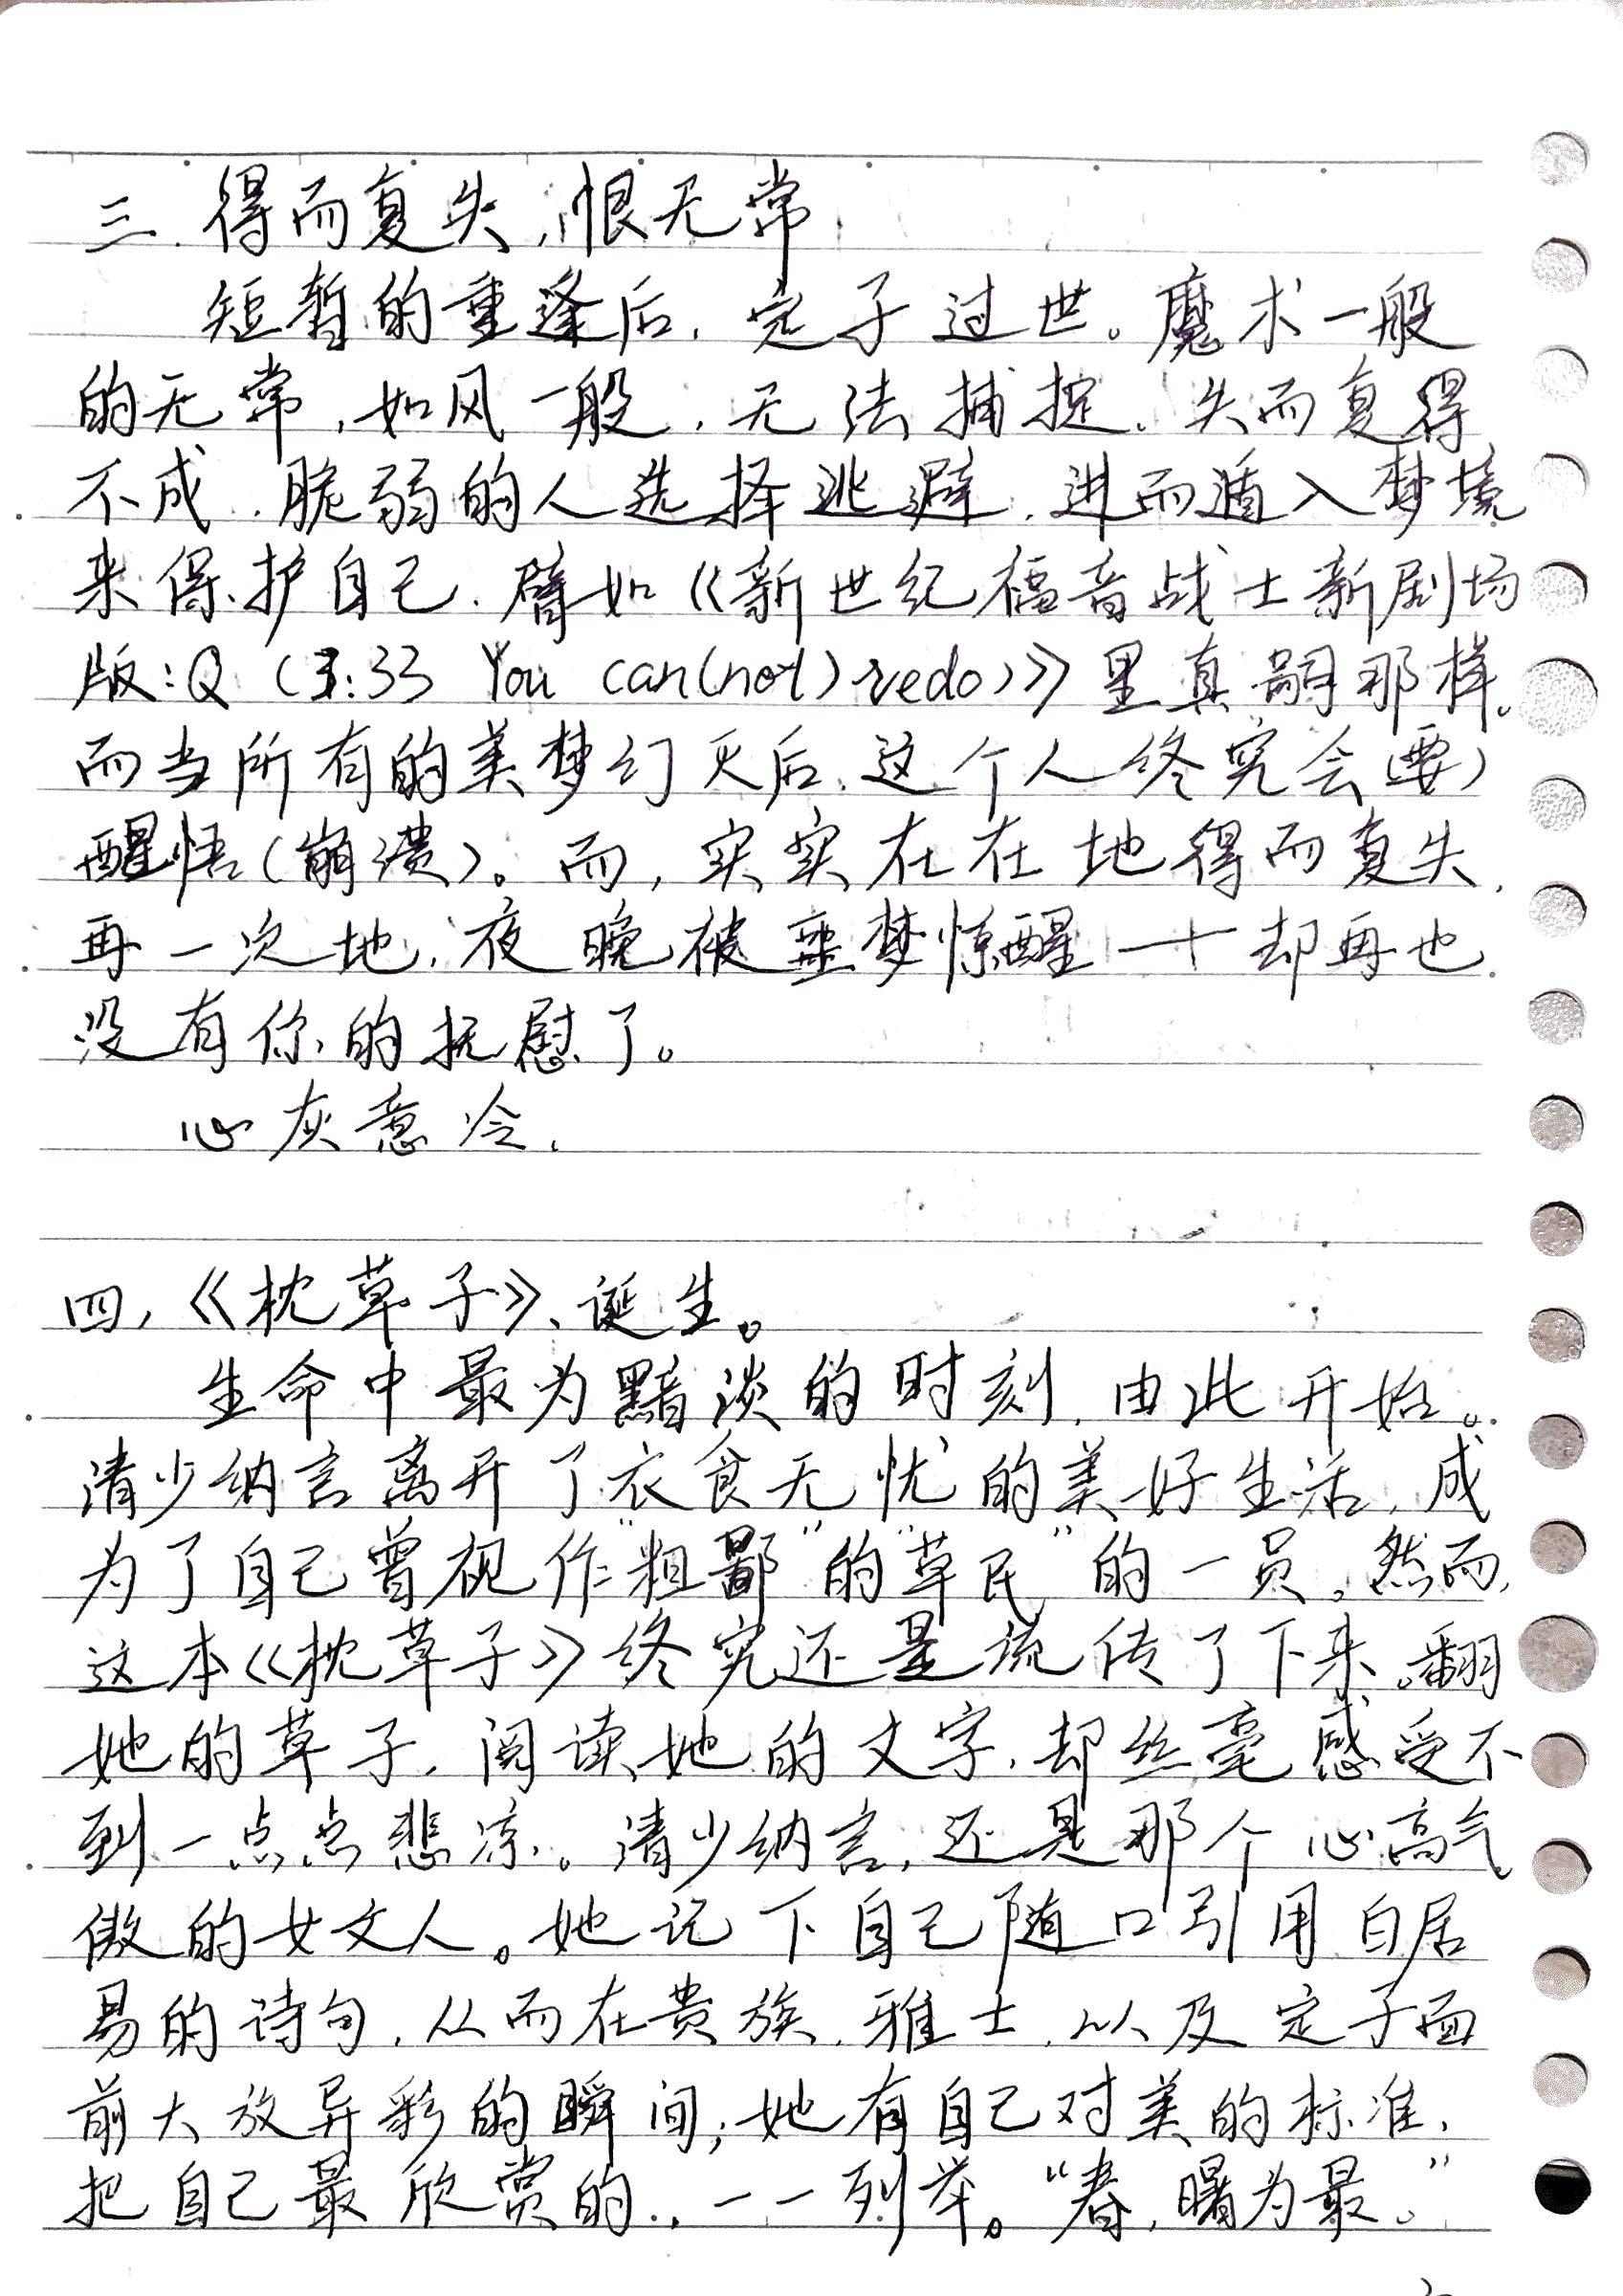 三、得而复失，恨无常
短暂的重逢后，定子过世。魔术一般
的无常，如风一般，无法捕捉。失而复得
不成，脆弱的人选择逃避，进而遁入梦境
来保护自己，譬如《新世纪福音战士新剧场
版:Q（3:33 You can(not) redo）》里真嗣那样。
而当所有的美梦幻灭后，这个人终究会（要）
醒悟（崩溃）。而，实实在在地得而复失，
再一次地，夜晚被噩梦惊醒——却再也
没有你的抚慰了。
心灰意冷。
四，《枕草子》、诞生。
生命中最为黯淡的时刻，由此开始。
清少纳言离开了衣食无忧的美好生活，成
为了自己曾视作“粗鄙”的“草民”的一员。然而，
这本《枕草子》终究还是流传了下来。翻
她的草子，阅读她的文字，却丝毫感受不
到一点点悲凉。清少纳言，还是那个心高气
傲的女文人。她记下自己随口引用白居
易的诗句，从而在贵族、雅士，以及定子面
前大放异彩的瞬间；她有自己对美的标准，
把自己最欣赏的，一一列举。“春，曙为最。”